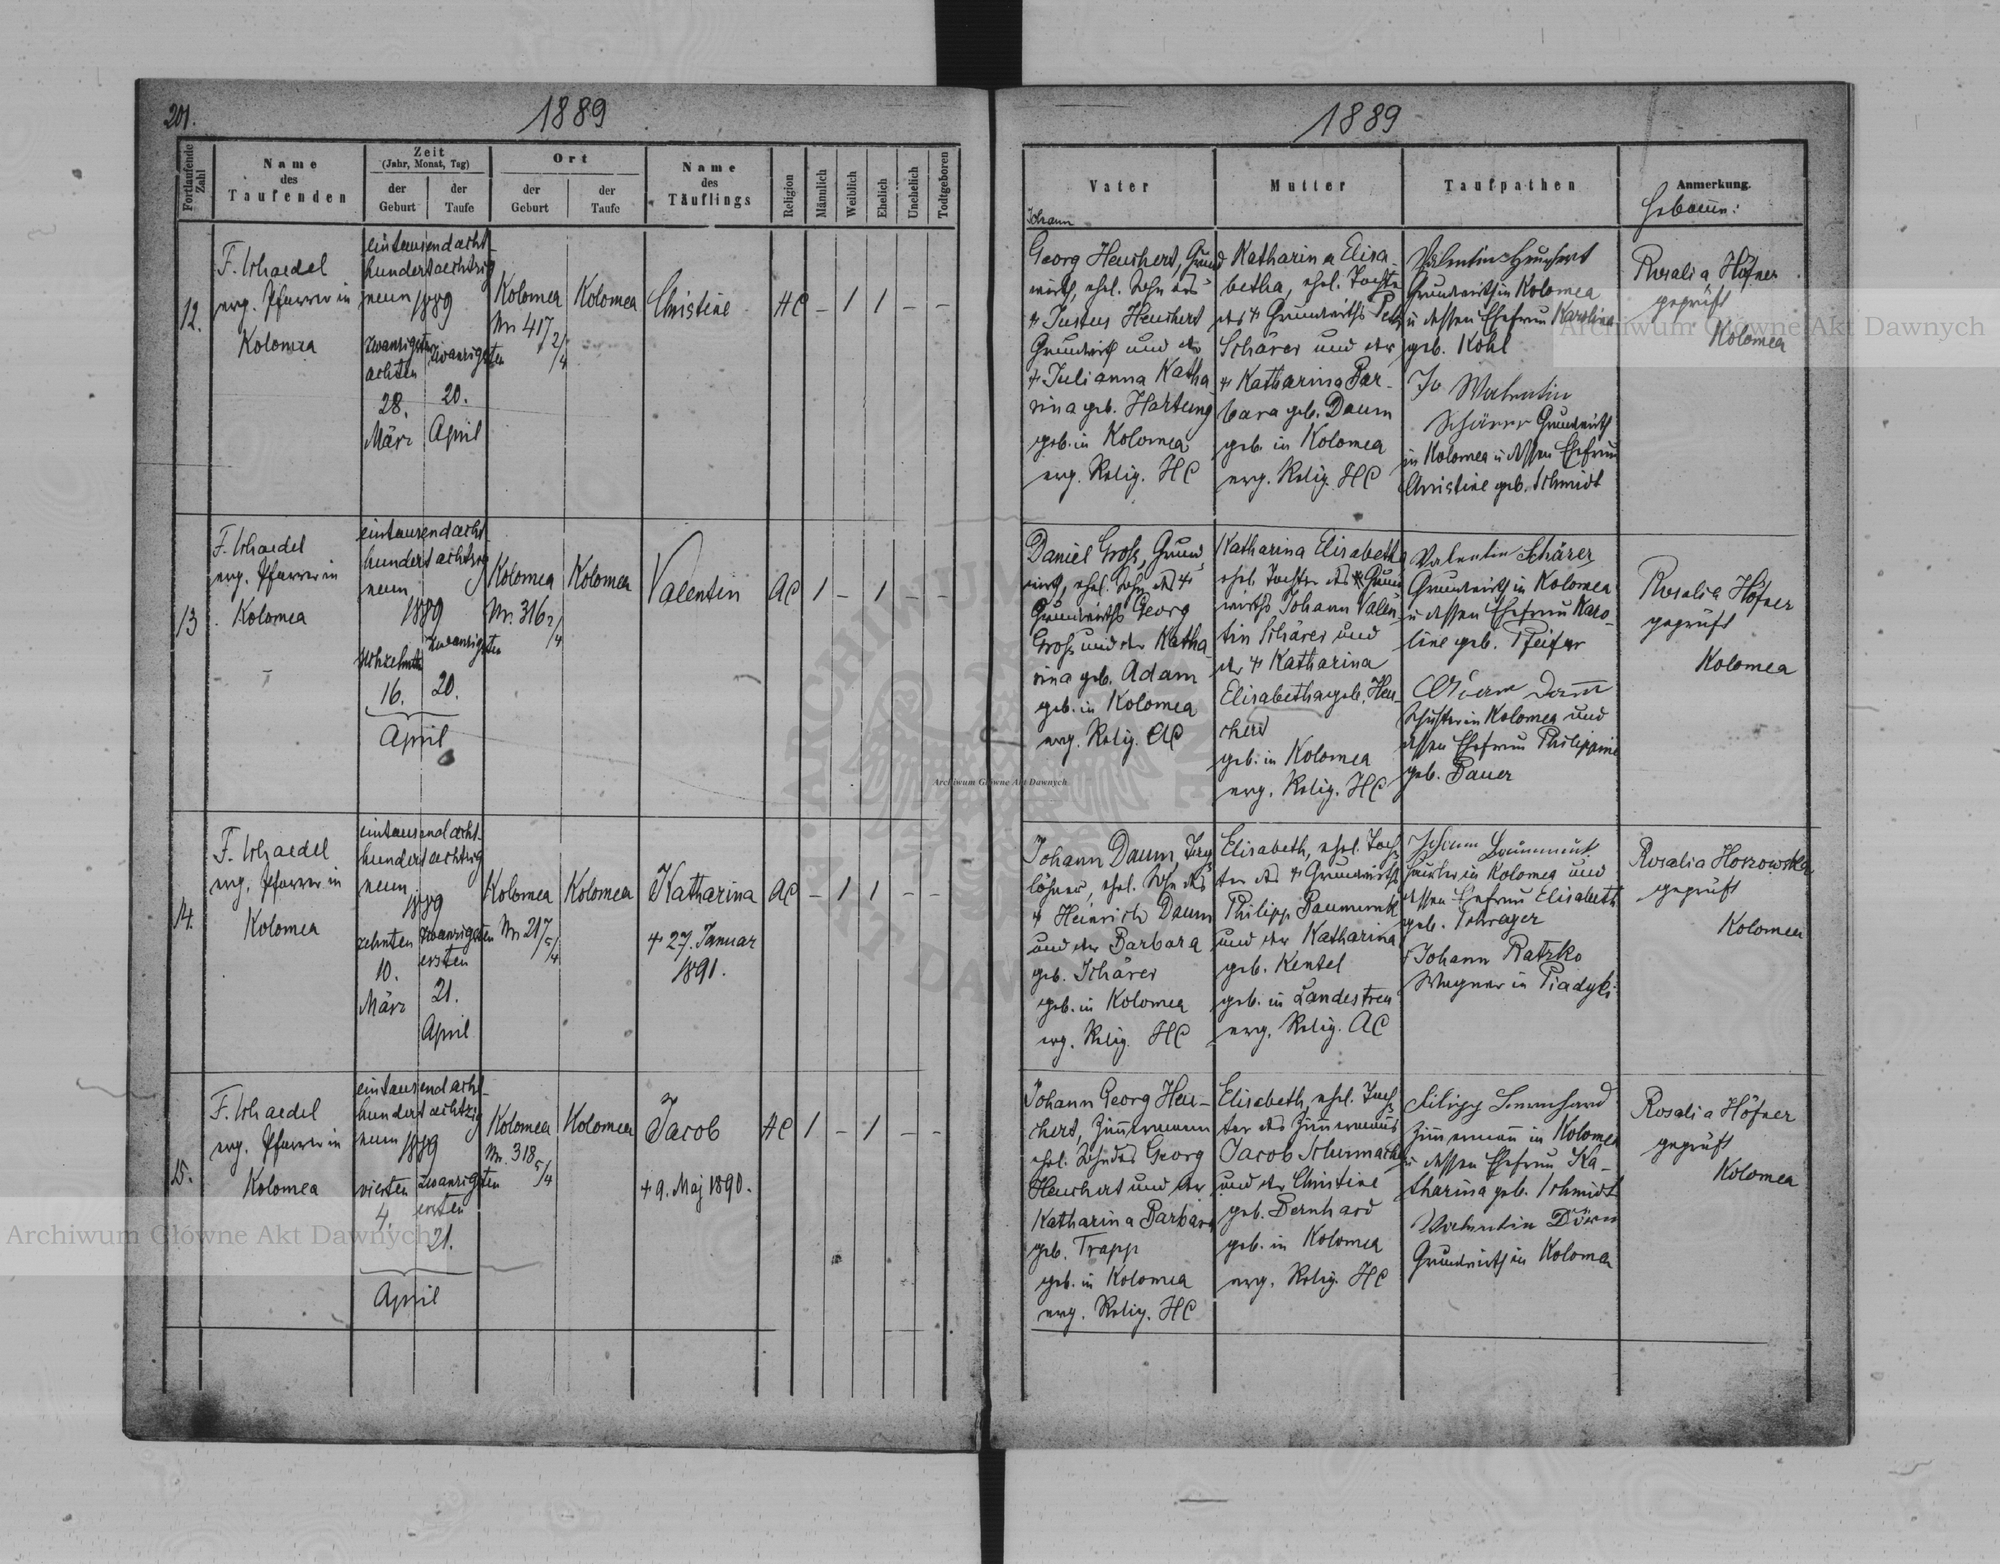 201.
1889
1889
Fortlaufende Zahl
Name
des
Taufenden
Zeit
(Jahr, Monat, Tag)
der
Geburt
der
Taufe
Ort
der
Geburt
der
Taufe
Name
des
Täuflings
Religion
Männlich
Weiblich
Ehelich
Unehelich
Todtgeboren
Vater
Mutter
Taufpathen
Anmerkung.
12.
evg. Pfarrer in
Kolomea
eintausendacht-
hundertachtzig
neun 1889
zwanzigsten
achten
28.
März
zwanzigsten
20.
April
Kolomea
Nr 417 2/4
Kolomea
Christine
HC
– 1 1 – –
Johann
Georg Heuchert, Grund
wirth, ehel. Sohn des
+ Justus Heuchert
Grundwirth und der
+ Julianna Katha
rina geb. Hartung
geb. in Kolomea
evg. Relig. HC
Katharina Elisa-
betha, ehel. Tochter
des + Grundwirths
Schärer und der
+ Katharina Bar-
bara geb. Daum
geb. in Kolomea
evg. Relig. HC
Valentin Heuchert
Grundwirth in Kolomea
u dessen Ehefrau Karolina
geb. Kohl
Valentin
Schärer Grundwirth
in Kolomea u dessen Ehefrau
Christine geb. Schmidt
Rosalia Höfner
geprüft
Kolomea
13
evg. Pfarrer in
Kolomea
eintausendacht-
hundertachtzig
neun
1889
sechzehnten
16.
zwanzigsten
20.
April
Kolomea
Nr. 316 2/4
Kolomea
Valentin
AC
1 – 1 – –
Daniel Groß, Grund
wirt, ehel. Sohn des +
Grundwirths Georg
Groß und der Katha-
rina geb. Adam
geb. in Kolomea
evg. Relig. AC
Katharina Elisabetha
ehel. Tochter des + Grund
wirths Johann Valen
tin Schärer und
der + Katharina
Elisabetha geb. Heu-
cherd
geb. in Kolomea
evg. Relig. HC
Valentin Schärer
Grundwirth in Kolomea
u dessen Ehefrau Karo-
line geb. Pfeifer
Schuster in Kolomea und
dessen Ehefrau Philippine
geb. Bauer
Rosalia Höfner
geprüft
Kolomea
14.
evg. Pfarrer in
Kolomea
eintausendacht-
hundertachtzig
neun
1889
zehnten
10.
März
zwanzigsten
ersten
21.
April
Kolomea
Nr 217 5/4
Kolomea
Katharina
+ 27. Januar
1891.
AC
– 1 1 – –
Johann Daum, Tag
löhner, ehel. Sohn des
+ Heinrich Daum
und der Barbara
geb. Schärer
geb. in Kolomea
evg. Relig. HC
Elisabeth, ehel. Toch-
ter des + Grundwirths
Philipp Baumunk
und der Katharina
geb. Kentel
geb. in Landestreu
evg. Relig. AC
Johann Baumunk
in Kolomea und
dessen Ehefrau Elisabeth
geb. Schrager
Johann Ratzko
Wagner in Piadyki
Rosalia Horzowska
geprüft
Kolomea
15.
evg. Pfarrer in
Kolomea
eintausendacht-
hundertachtzig
neun 1889
vierten
4.
zwanzigsten
ersten
21.
April
Kolomea
Nr. 318 5/4
Kolomea
Jacob
+ 9. Maj 1890.
HC
1 – 1 – –
Johann Georg Heu-
chert, Zimmermann
ehel. Sohn des Georg
Heuchert und der
Katharina Barbara
geb. Trapp
geb. in Kolomea
evg. Relig. HC
Elisabeth, ehel. Toch-
ter des Zimmermanns
Jacob Schumacher
und der Christine
geb. Bernhard
geb. in Kolomea
evg. Relig. HC
Filipp Bernhard
Zimmermann in Kolomea
u dessen Ehefrau Ka-
tharina geb. Schmidt
Valentin Dörn
Grundwirth in Kolomea
Rosalia Höfner
geprüft
Kolomea
Archiwum Główne Akt Dawnych
Archiwum Główne Akt Dawnych
Archiwum Główne Akt Dawnych